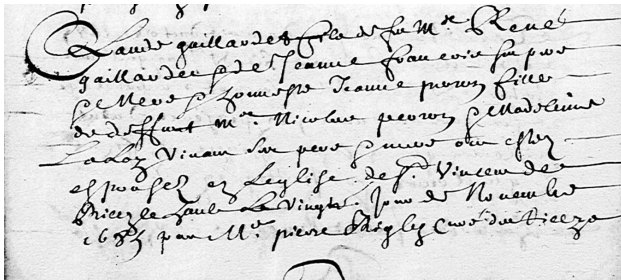 Claude gaillardet filz de feu Me René
gaillardet & de Jeanne francois ses pere
& Mere & honneste Jeanne perron fille
de deffunt Me Nicolas perron & Madeleine
Vivant ses pere & mere ont estez
espousez en Leglise de St Vincent de
le hault Le Vingte Jour de Novembre
par Me pierre Curé du